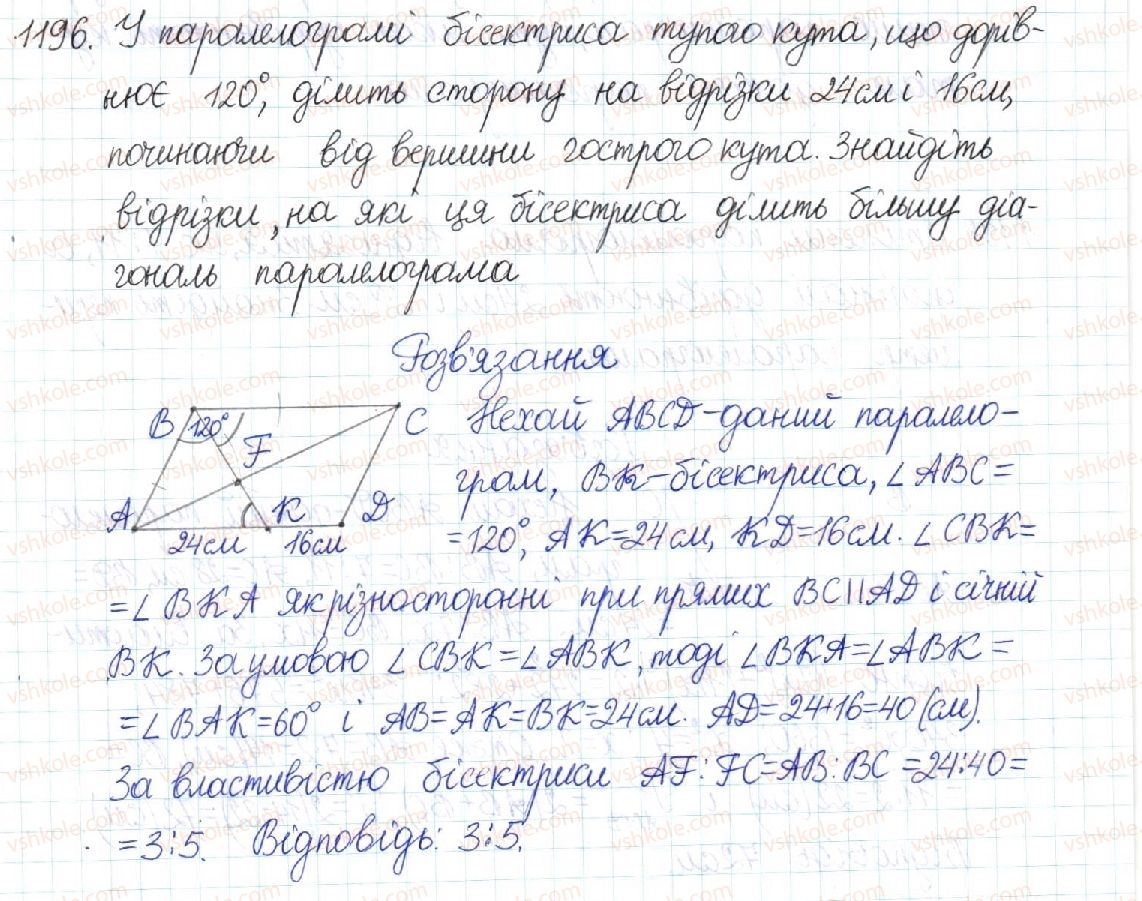 1196. У паралелограмі бісектриса тупого кута, що дорів-
нює 120°, ділить сторону на відрізки 24см і 16см,
починаючи від вершини гострого кута. Знайдіть
відрізки, на які ця бісектриса ділить більшу діа-
гональ паралелограма
Розв'язання
B 120° F C
A K D
24см 16см
Нехай ABCD-даний паралело-
грам, BK-бісектриса, ∠ABC=
=120°, AK=24см, KD=16см. ∠CBK=
=∠BKA як різносторонні при прямих BC||AD і січній
BK. За умовою ∠CBK=∠ABK, тоді ∠BKA=∠ABK=
=∠BAK=60° і AB=AK=BK=24см. AD=24+16=40(см).
За властивістю бісектриси AF:FC=AB:BC=24:40=
=3:5. Відповідь: 3:5.